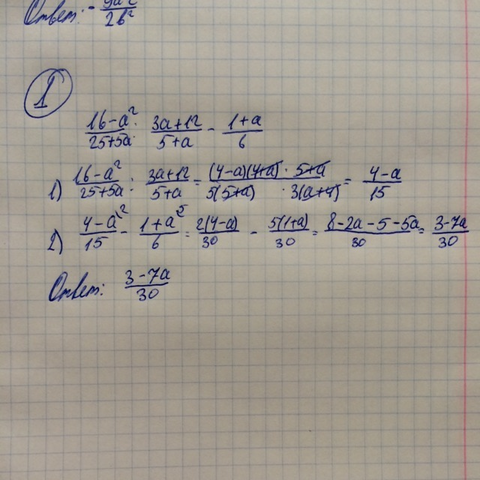 Ответ: - 9a²/2b²
1
(16-a²)/(25+5a) : (3a+12)/(5+a) - (1+a)/6
1) (16-a²)/(25+5a) : (3a+12)/(5+a) = ((4-a)(4+a) · 5+a)/(5(5+a) · 3(a+4)) = (4-a)/15
2) (4-a)/15 ² - (1+a)/6 ⁵ = 2(4-a)/30 - 5(1+a)/30 = (8-2a-5-5a)/30 = (3-7a)/30
Ответ: (3-7a)/30